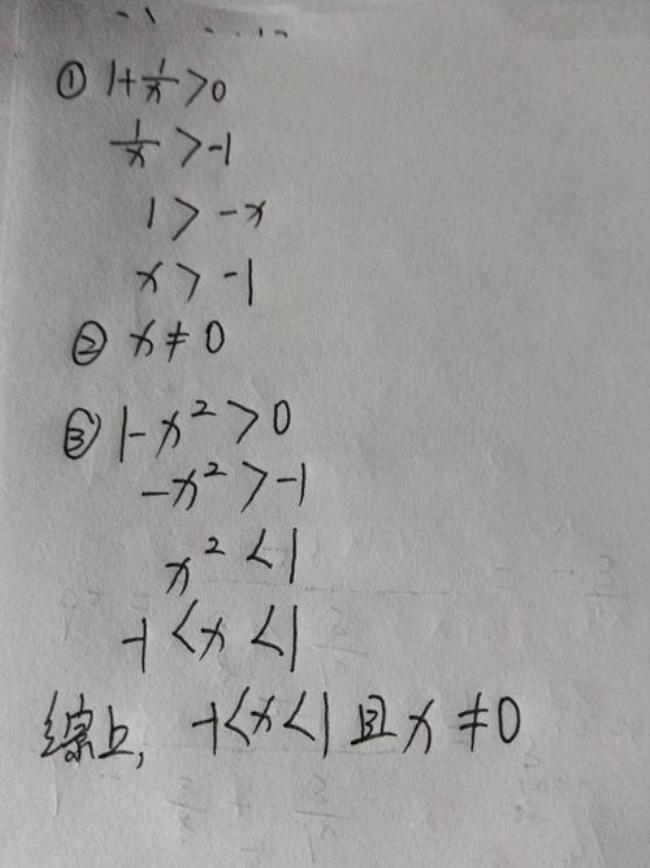 ① 1+1/x>0
1/x>-1
1>-x
x>-1
② x≠0
③ 1-x²>0
-x²>-1
x²<1
-1<x<1
综上, -1<x<1且x≠0